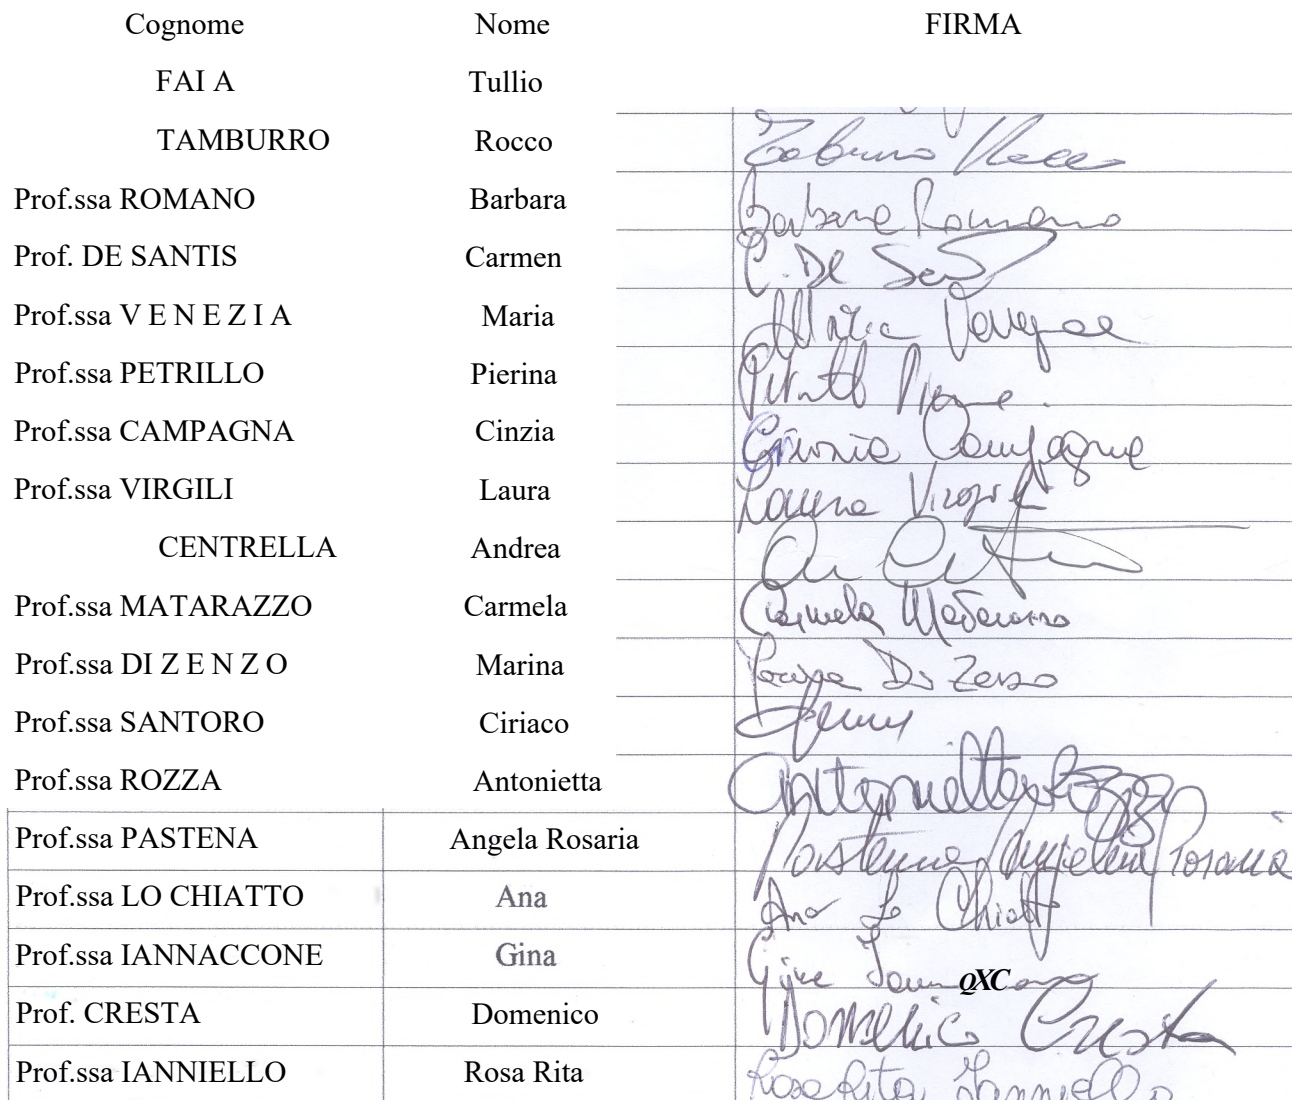 Cognome Nome FIRMA
FAI A Tullio
TAMBURRO Rocco
Prof.ssa ROMANO Barbara Barbara Romano
Prof. DE SANTIS Carmen C. De
Prof.ssa V E N E Z I A Maria Maria
Prof.ssa PETRILLO Pierina
Prof.ssa CAMPAGNA Cinzia Cinzia Campagna
Prof.ssa VIRGILI Laura Laura
CENTRELLA Andrea
Prof.ssa MATARAZZO Carmela Carmela Matarazzo
Prof.ssa DI Z E N Z O Marina Marina Di Zenzo
Prof.ssa SANTORO Ciriaco
Prof.ssa ROZZA Antonietta Antonietta Rozza
Prof.ssa PASTENA Angela Rosaria Pastena Angela Rosaria
Prof.ssa LO CHIATTO Ana Ana Lo Chiatto
Prof.ssa IANNACCONE Gina Gina QXC
Prof. CRESTA Domenico Domenico Cresta
Prof.ssa IANNIELLO Rosa Rita Rosa Rita Ianniello